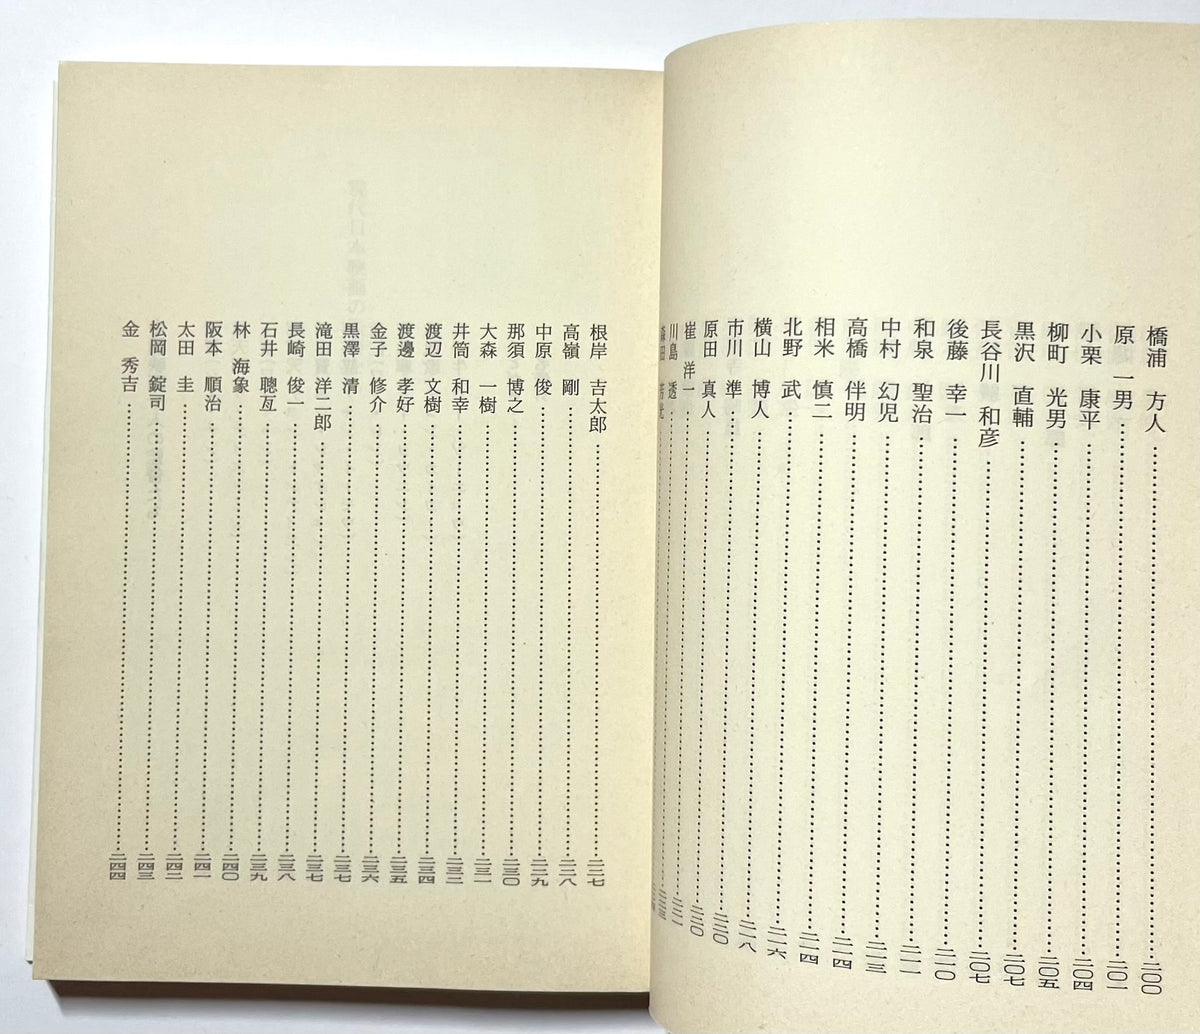 橋浦 方人……二〇〇
原 一男……二〇一
小栗 康平……二〇四
柳町 光男……二〇五
黒沢 直輔……二〇七
長谷川 和彦……二〇七
後藤 幸一……二一〇
和泉 聖治……二一一
中村 幻児……二一三
高橋 伴明……二一四
相米 慎二……二一四
北野 武……二一六
横山 博人……二一八
市川 準……二二〇
原田 真人……二二〇
崔 洋一……
川島 透……
森田 芳光……
根岸 吉太郎……二二七
高嶺 剛……二二八
中原 俊……二二九
那須 博之……二三〇
大森 一樹……二三一
井筒 和幸……
渡辺 文樹……二三四
渡邊 孝好……二三五
金子 修介……二三六
黒澤 清……二三七
滝田 洋二郎……二三七
長崎 俊一……二三八
石井 聰亙……二三九
林 海象……二四〇
阪本 順治……二四一
太田 圭……二四二
松岡 錠司……二四三
金 秀吉……二四四